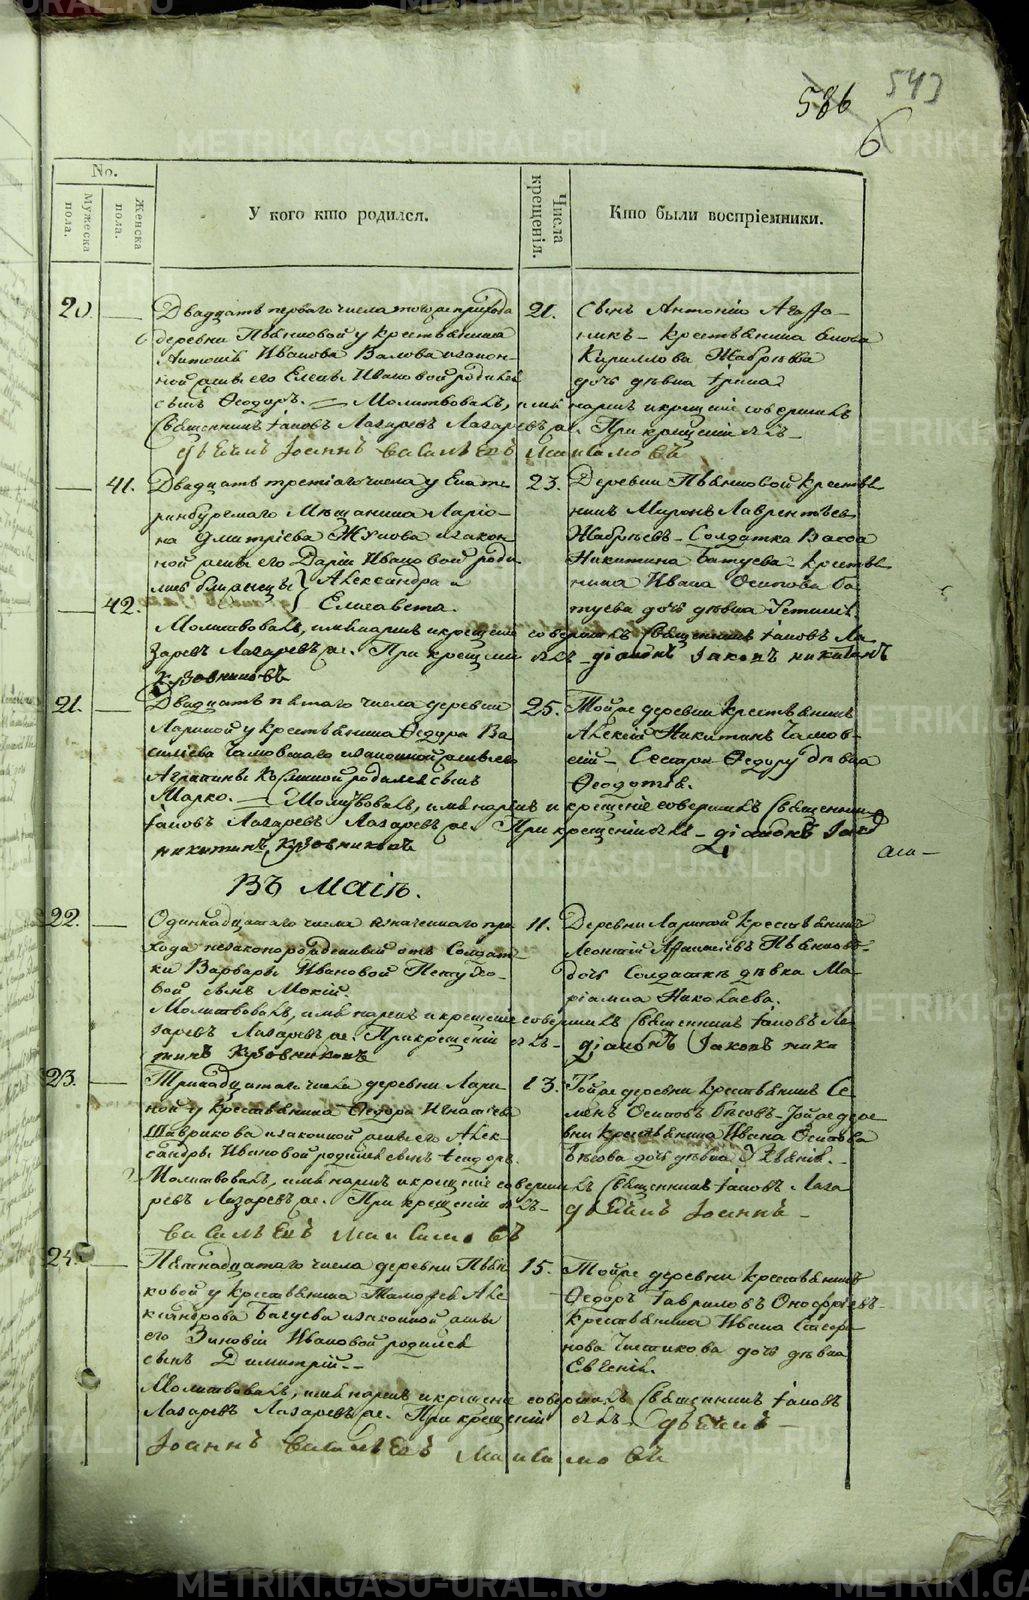 586
543
6
No.
Мужеска пола.
Женска пола.
У кого кто родился.
Числа крещенія.
Кто были воспріемники.
20
Двадцать перваго числа тогоже прихода
деревни Пьянковой у крестьянина
Антона Иванова Валова и закон-
ной жены его Елены Ивановой родился
сынъ Ѳеодоръ. — Молитвовалъ, имя нарекъ и крещеніе совершилъ
Священникъ Іаковъ Лазаревъ Лазаревъ же. При крещеніи былъ
дьячекъ Іоаннъ
21.
сынъ Антоніо Агафо-
никъ - крестьянина
Кириллова Жабрѣева
дочь дѣвка Ирина
41.
Двадцать третіаго числа у Екате
ринбургскаго Мѣщанина Ларіо-
на Дмитріева Жукова и закон
ной жены его Даріи Ивановой роди
лись близнецы Александра и
42.
Елисавета.
Молитвовалъ, имя нарекъ и крещеніе совершилъ Священникъ Іаковъ Ла-
заревъ Лазаревъ же. При крещеніи былъ - діаконъ Іаковъ никитинъ
Кузовниковъ
23.
Деревни Пьянковой крестья
нинъ Миронъ Лаврентьевъ
Жабрѣевъ - Солдатка
Никитина Батуева - крестья
нина Ивана Осипова Ба
туева дочь дѣвка Устинья
21.
Двадцать пятаго числа деревни
Лариной у крестьянина Ѳедора Ва
сильева и законной жены его
Агрипины родился сынъ
Марко. — Молитвовалъ, имя нарекъ и крещеніе совершилъ Священникъ
Іаковъ Лазаревъ Лазаревъ же. При крещеніи былъ - діаконъ Іаковъ
никитинъ Кузовниковъ
25.
Тойже деревни крестьянинъ
Алексій Никитинъ
Сестра Ѳедору дѣвка
Ѳеодотія.
Въ Маіѣ.
22.
Одиннадцатаго числа означеннаго при
хода незаконорожденный отъ Солдат-
ки Варвары Ивановой Петухо-
вой сынъ Мокій.
Молитвовалъ, имя нарекъ и крещеніе совершилъ Священникъ Іаковъ Ла-
заревъ Лазаревъ же. При крещеніи былъ - діаконъ Іаковъ ники
тинъ Кузовниковъ
11.
Деревни Лариной крестьянинъ
Леонтій Афанасіевъ Пьянковъ
дочь Солдатки дѣвка Ма-
ріамна Николаева.
23.
Тринадцатаго числа деревни Лари
ной у крестьянина Ѳедора Игнатіева
Шаврикова и законной жены его Алек-
сандры Ивановой родился сынъ Исидоръ.
Молитвовалъ, имя нарекъ и крещеніе совершилъ Священникъ Іаковъ Лаза
ревъ Лазаревъ же. При крещеніи былъ - дьячекъ Іоаннъ
13.
Тойже деревни крестьянинъ Се
менъ Осиповъ Бѣсовъ - Тойже дере
вни крестьянина Ивана Осипова
Бѣсова дочь дѣвка
24.
Пятнадцатаго числа деревни Пьян
ковой у крестьянина Тимофея Але
ксандрова Батуева и законной жены
его Зиновіи Ивановой родился
сынъ Димитрій.
Молитвовалъ, имя нарекъ и крещеніе совершилъ Священникъ Іаковъ
Лазаревъ Лазаревъ же. При крещеніи былъ - дьячекъ
Іоаннъ
15.
Тойже деревни крестьянинъ
Ѳедоръ Гавриловъ Оносфріевъ
крестьянина Ивана
Чистякова дочь дѣвка
Евгенія.
METRIKI.GASO-URAL.RU